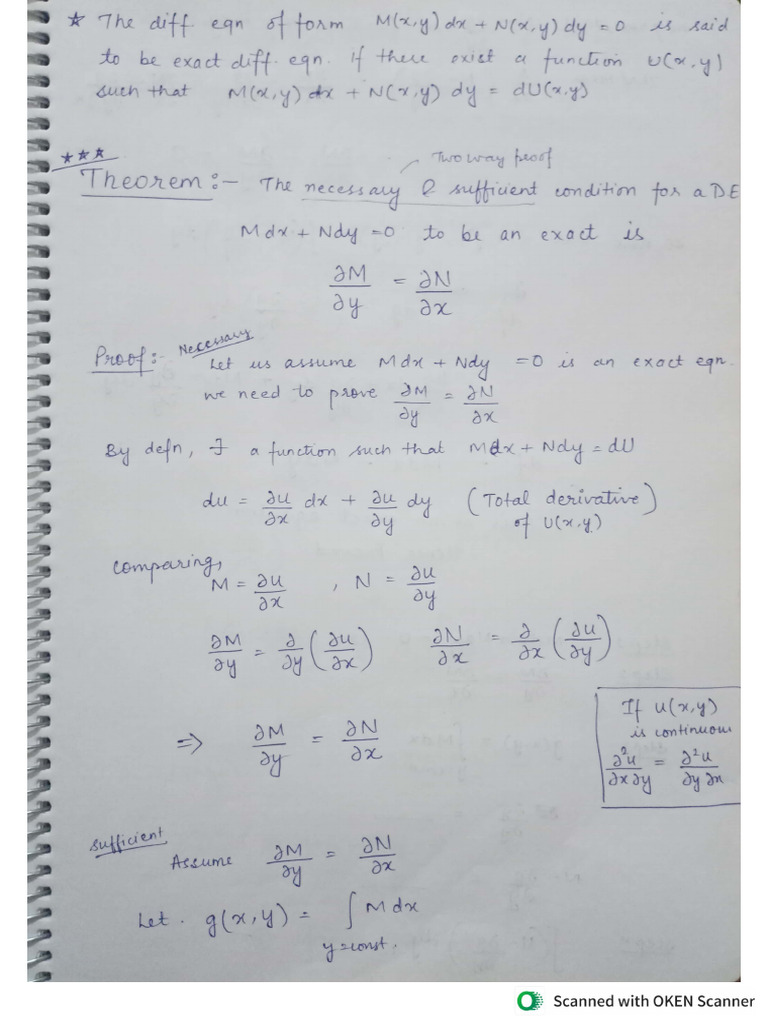 ★ The diff eqn of form M(x,y)dx + N(x,y)dy = 0 is said
to be exact diff. eqn. if there exist a function U(x,y)
such that M(x,y)dx + N(x,y) dy = dU(x,y)
★★★
Two way proof
Theorem:- The necessary & sufficient condition for a DE
Mdx + Ndy = 0 to be an exact is
∂M/∂y = ∂N/∂x
Proof:- Necessary
Let us assume Mdx + Ndy = 0 is an exact eqn.
we need to prove ∂M/∂y = ∂N/∂x
By defn, ∃ a function such that Mdx + Ndy = dU
du = ∂u/∂x dx + ∂u/∂y dy (Total derivative of U(x,y))
comparing,
M = ∂u/∂x , N = ∂u/∂y
∂M/∂y = ∂/∂y (∂u/∂x) ∂N/∂x = ∂/∂x (∂u/∂y)
If u(x,y)
is continuous
∂²u/∂x∂y = ∂²u/∂y∂x
⇒ ∂M/∂y = ∂N/∂x
Sufficient
Assume ∂M/∂y = ∂N/∂x
Let. g(x,y) = ∫ Mdx
y=const.
Scanned with OKEN Scanner